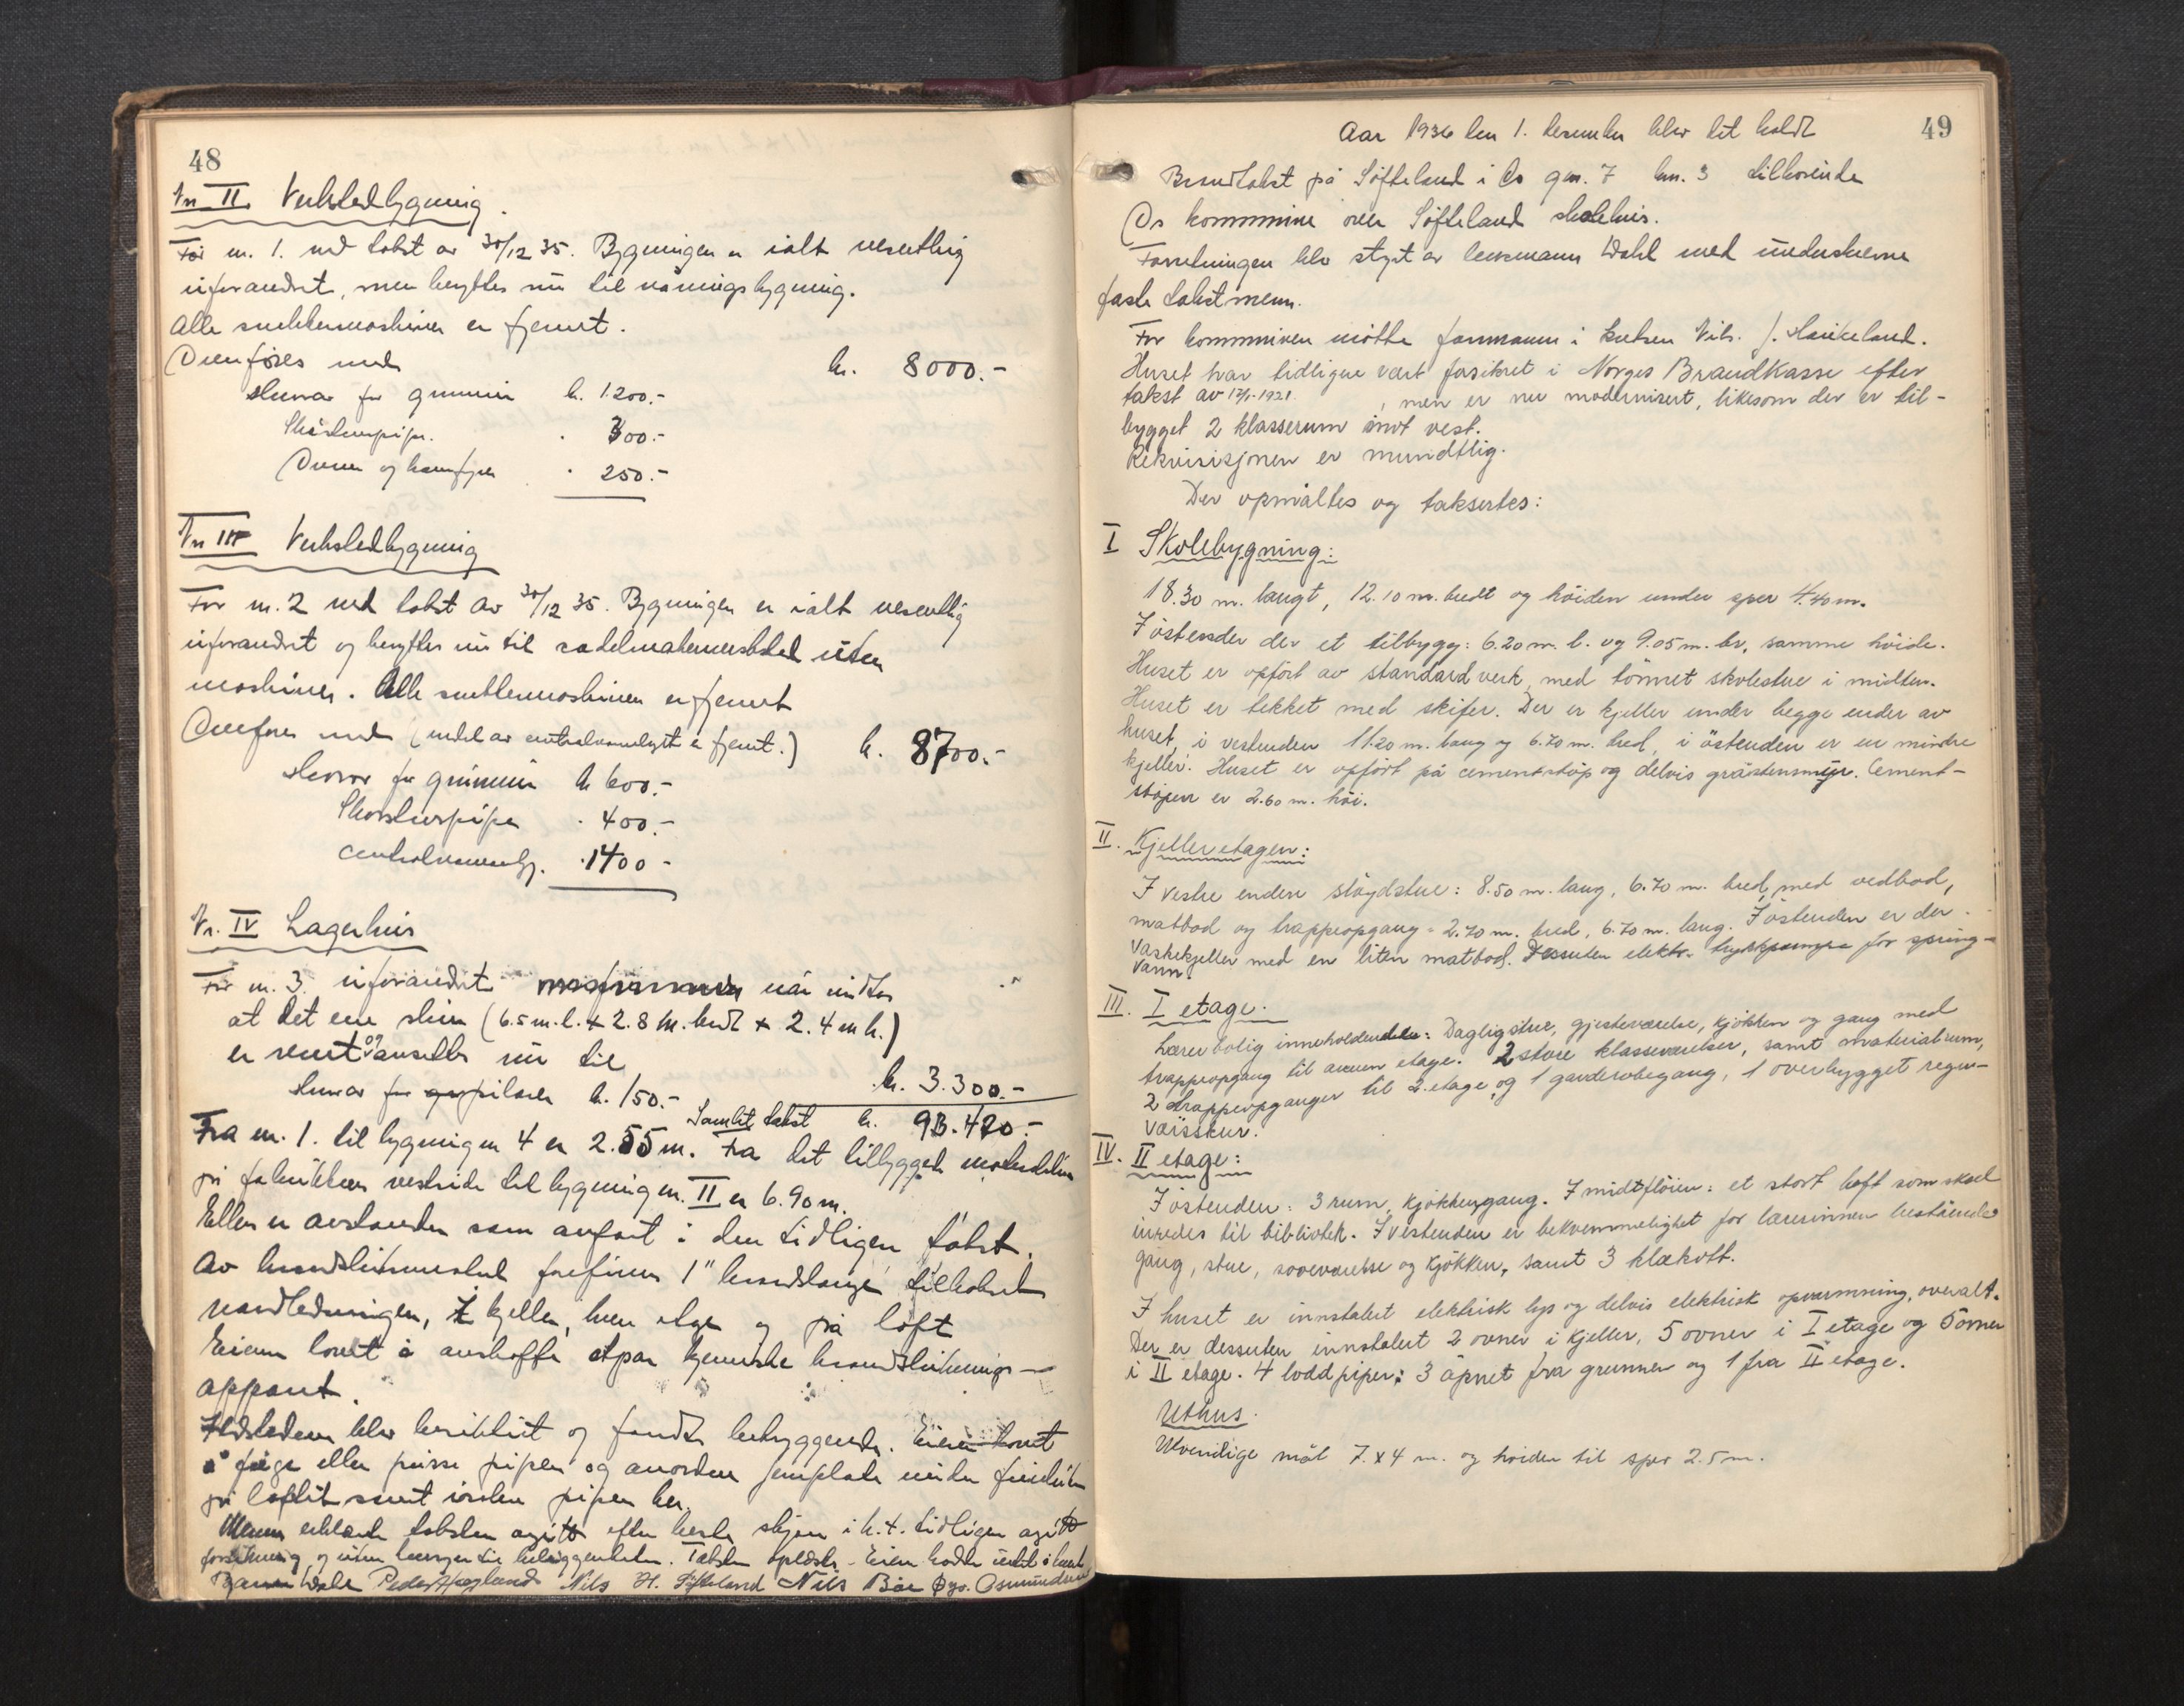 48
Nr II Verkstedbygning.
Før nr. 1. ved takst av 30/12 35. Bygningen er ialt vesentlig
uforandret, men benyttes nu til våningsbygning.
Alle snekkermaskiner er fjernet.
Overføres med kr. 8000.-
Herav for grunnen kr. 1200.-
Skorstenspipe. . 300.-
Ovner og komfyrer . 250.-
Nr III Verkstedbygning
Før nr. 2 ved takst av 30/12 35. Bygningen er ialt vesentlig
uforandret og benyttes nu til sadelmakerverksted uten
maskiner. Alle snekkermaskiner er fjernet
Overføres med (endel av centralvarmelegg er fjernet.) kr. 8700.-
Herav for grunnen kr 600.-
Skorstenspipe . 400.-
Centralvarmelegg. . 1400 -
Nr. IV Lagerhus
Før nr. 3. uforandret når undtas
at det ene skur (6.5 m. l. + 2.8 m. bredt + 2.4 m h.)
er revet og ansettes nu til kr. 3.300.-
Herav for pilarer kr. 150.-
Samlet takst kr. 93.420.-
Fra nr. 1. til bygningen 4 er 2.55 m. Fra det tilbygget
på fabrikkens vestside til bygning nr. II er 6.90 m.
Ellers er avstanden som anført i den tidligere takst.
Av brandslukningsutstyr forefinnes 1" brandslange tilkoblet
vandledningen, i kjeller, hver etage og på loft
Eieren lovet å anskaffe etpar kjemiske brandsluknings-
apparat.
Ildstedene blev besiktiget og fandtes betryggende. Eieren lovet
å fuge eller pusse pipen og anordne jernplate under feieluken
på loftet samt
Menn erklærte taksten avgitt efter beste skjønn i h.t. tidligere avgitt
forsikring og uten hensyn til beliggenheten. Taksten oplæst - Eieren hadde intet å bemerke
Bjarne Wahl Peder Hægland Nils H. Søfteland Nils Bøe Øyv. Osmundsen
49
Aar 1936 den 1. desember blev det holdt
Brandtakst på Søfteland i Os gnr. 7 bnr. 3 tilhørende
Os kommune over Søfteland skolehus.
Forretningen blev styrt av lensmann Wahl med underskrevne
faste takstmenn.
For kommunen møtte formann i kretsen Nils. J. Haukeland.
Huset har tidligere vært forsikret i Norges Brandkasse efter
takst av 17/1-1921. , men er nu modernisert, likesom der er til-
bygget 2 klasserum imot vest.
Rekvisisjonen er mundtlig.
Der opmåltes og taksertes:
I Skolebygning:
18.30 m. langt, 12.10 m. bredt og høiden under sper 4.40 m.
I östenden der et tilbygg: 6.20 m. l. og 9.05 m. br, samme höide.
Huset er opfört av standard verk, med tömret skolestue i midten.
Huset er tekket med skifer. Der er kjeller under begge ender av
huset, i vestenden 11.20 m. lang og 6.70 m. bred, i östenden er en mindre
kjeller. Huset er opfört på cementstöp og delvis gråstensmur. Cement-
stöpen er 2.60 m. höi.
II. Kjelleretagen:
I vestre enden slöydstue: 8.50 m. lang, 6.70 m. bred, med vedbod,
matbod og trappeopgang = 2.70 m. bred, 6.70 m. lang. I östenden er der
vaskekjeller med en liten matbod. Dessuten elektr. trykkpumpe for spring-
vann.
III. I etage.
Lærerbolig inneholdende: Dagligstue, gjesteværelse, kjökken og gang med
trappeopgang til annen etage. 2 store klasseværelser, samt materialrum,
2 trappeopganger til 2. etage, og 1 garderobegang, 1 overbygget regn-
værsskur.
IV. II etage:
I östenden: 3 rum, kjökken, gang. I midtflöien: et stort loft som skal
inredes til bibliotek. I vestenden er bekvemmelighet for lærerinnen bestående
gang, stue, soveværelse og kjökken, samt 3 klækott.
I huset er innstalert elektrisk lys og delvis elektrisk opvarmning, overalt.
Der er dessuten innstalert 2 ovner i kjeller, 5 ovner i I etage og 5 ovner
i II etage. 4 lodd piper: 3 åpnet fra grunnen og 1 fra II etage.
Uthus.
Utvendige mål 7. x 4 m. og höiden til sper 2.5 m.